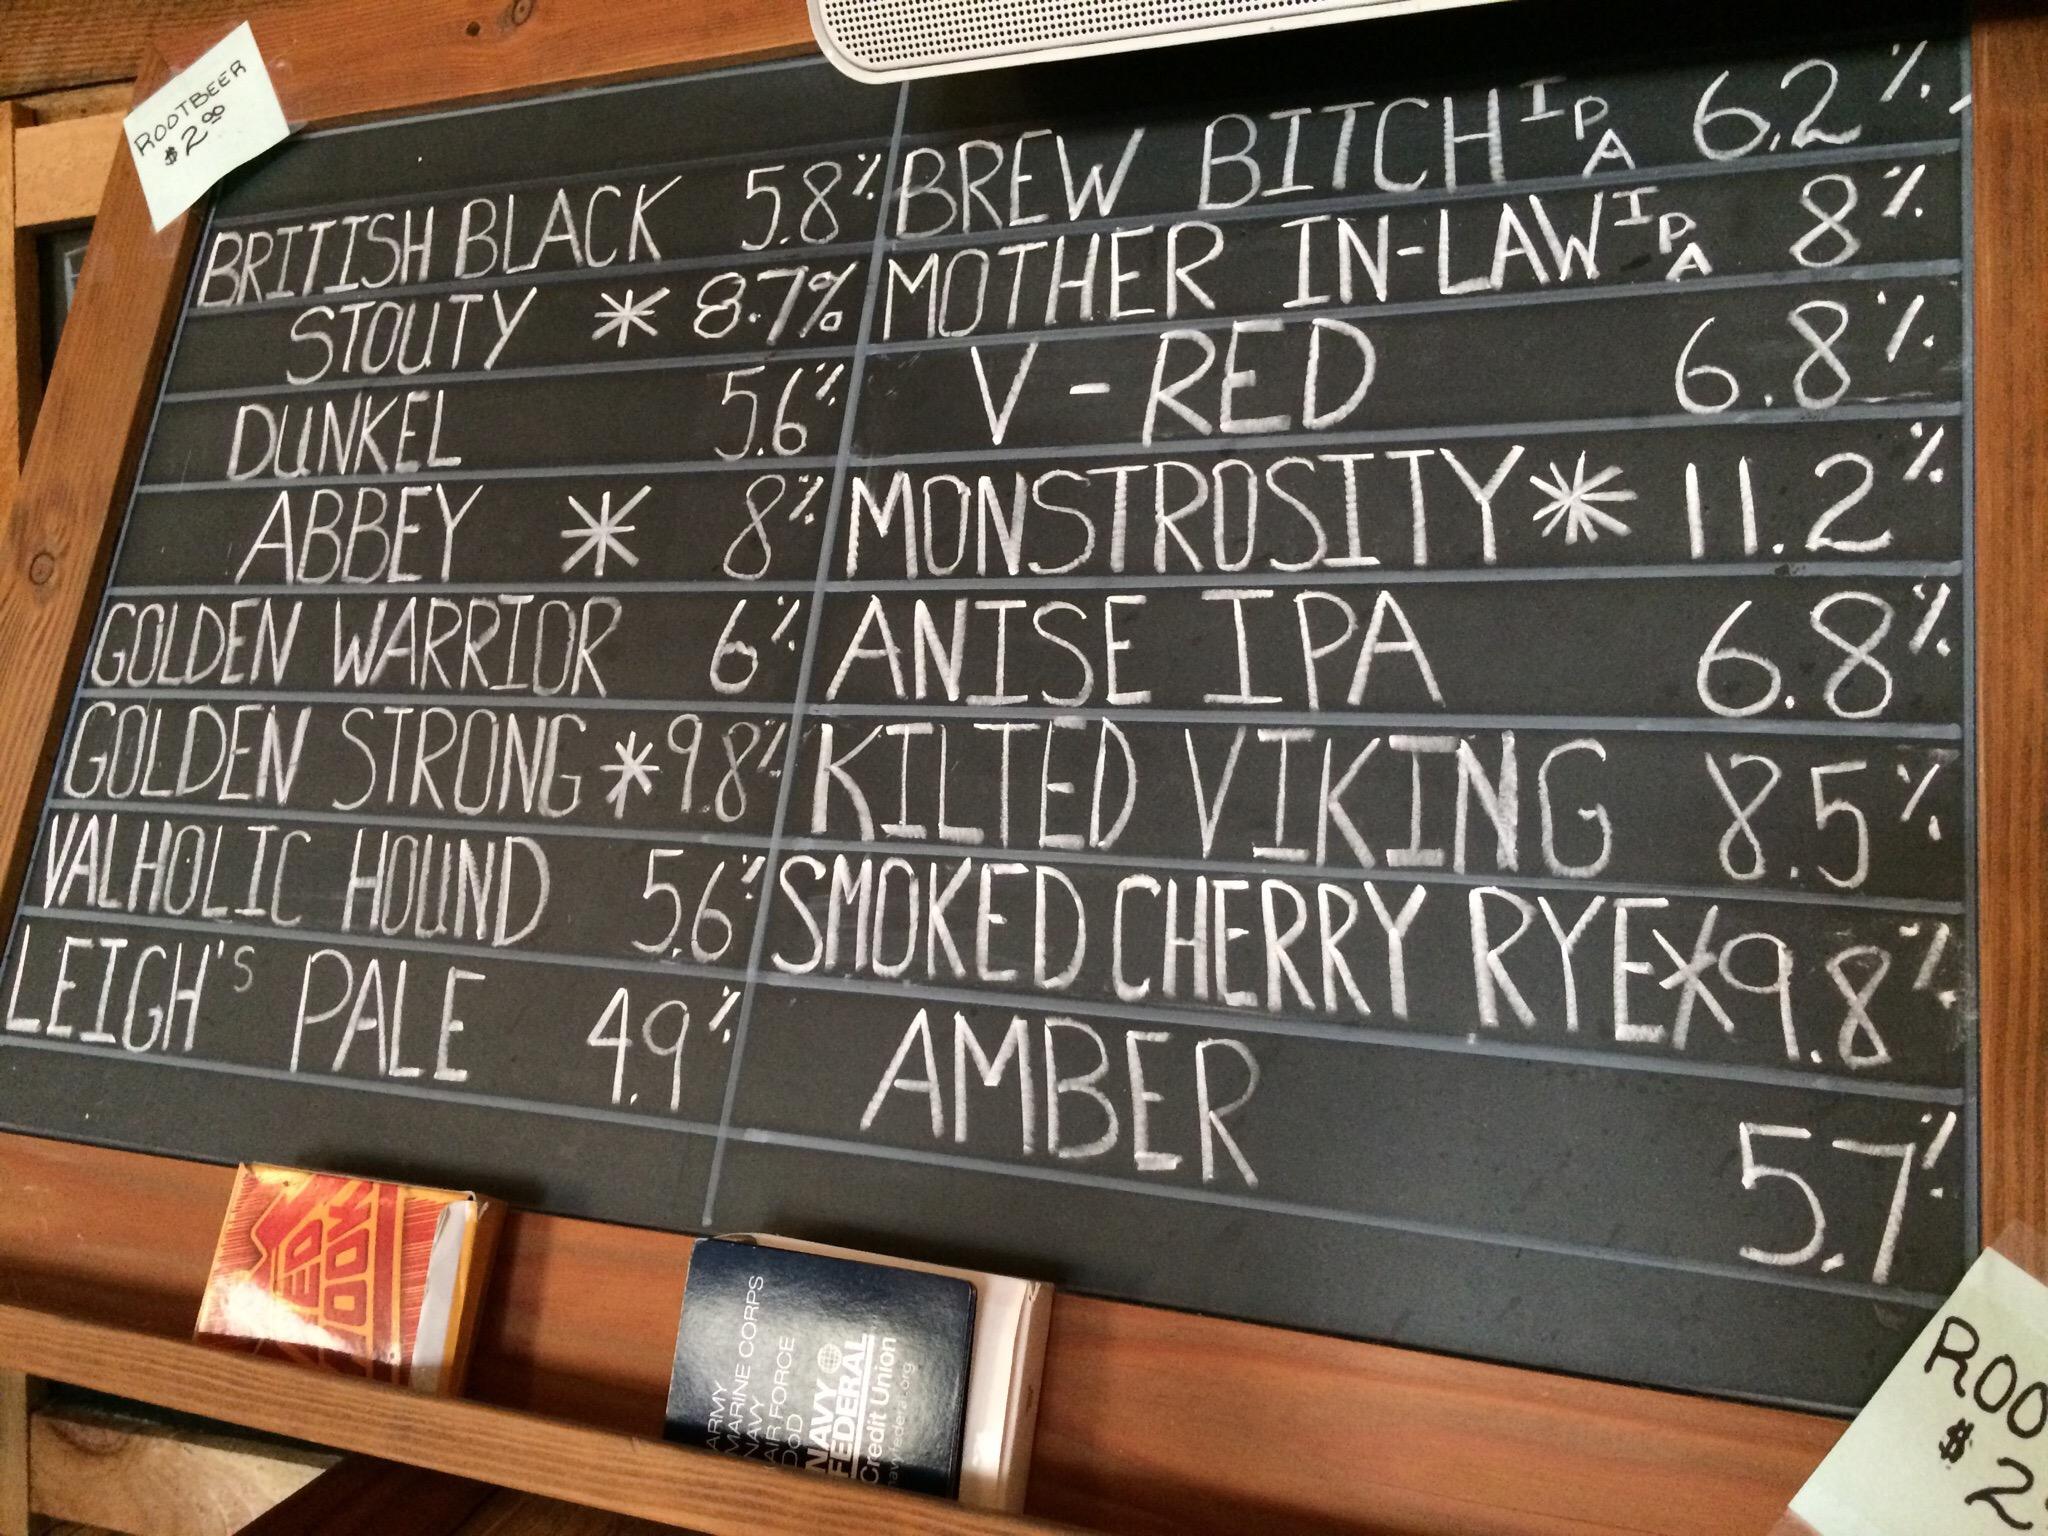 ROOTBEER
$2.00
BRITISH BLACK 5.8%
STOUTY * 8.7%
DUNKEL 5.6%
ABBEY * 8%
GOLDEN WARRIOR 6%
GOLDEN STRONG * 9.8%
VALHOLIC HOUND 5.6%
LEIGH'S PALE 4.9%
BREW BITCH IPA 6.2%
MOTHER IN-LAW IPA 8%
V-RED 6.8%
MONSTROSITY * 11.2%
ANISE IPA 6.8%
KILTED VIKING 8.5%
SMOKED CHERRY RYE * 9.8%
AMBER 5.7%
ARMY
MARINE CORPS
NAVY
AIR FORCE
DOD
NAVY
FEDERAL
Credit Union
ROO
$2